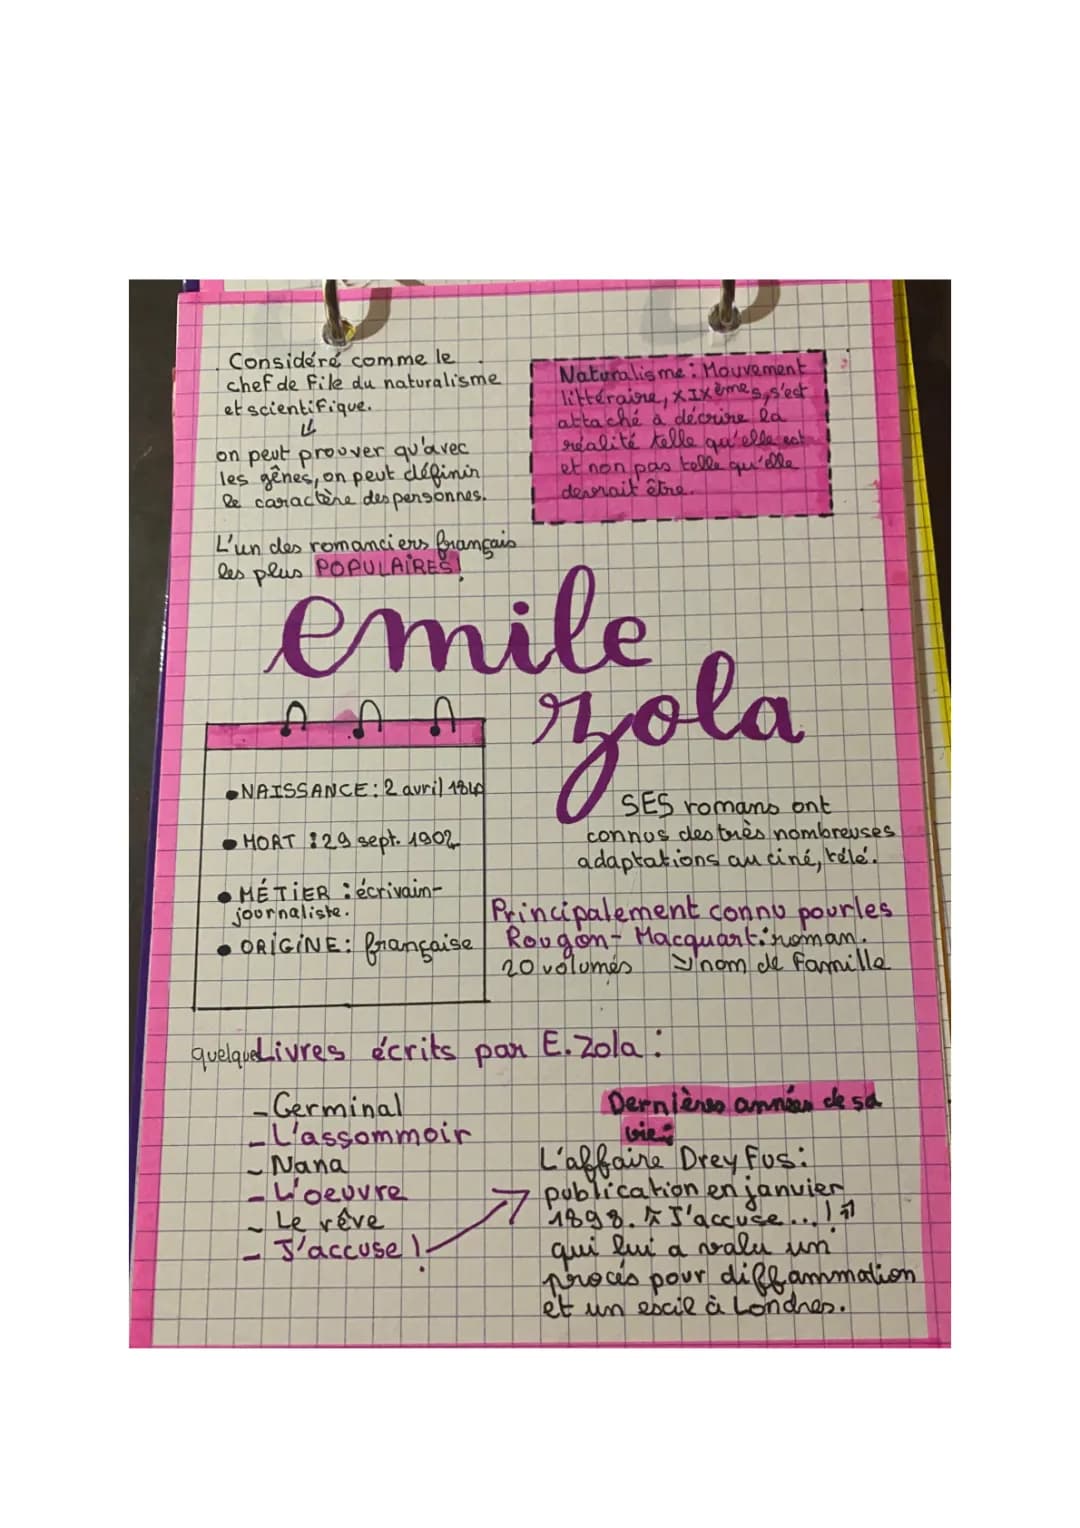 Considéré comme le
chef de file du naturalisme
et scientifique.
on peut proover qu'avec
les gênes, on peut définir
le caractère des personnes.
L'un des romanciers français
les plus POPULAIRES!
Naturalisme : Mouvement
littéraire, XIXème s, s'est
attaché à décrire la
réalité telle qu'elle est
et non pas telle qu'elle
devrait être.
emile
zola
• NAISSANCE : 2 avril 1840
• MORT : 29 sept. 1902
• MÉTIER : écrivain-
journaliste.
• ORIGINE : française
SES romans ont
connus des très nombreuses
adaptations au ciné, télé.
Principalement connu pour les
Rougon-Macquart : roman.
20 volumes nom de famille
quelques Livres écrits par E. Zola :
- Germinal
- L'assommoir
- Nana
- L'oeuvre
- Le rêve
- J'accuse !
Dernières années de sa
vie :
L'affaire Dreyfus :
publication en janvier
1898. « J'accuse... ! »
qui lui a valu un
procés pour diffammation
et un escil à Londres.